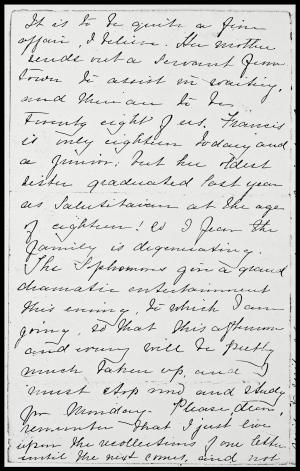 It is to be quite a fine
affair, I believe. Her mother
sends out a servant from
town to assist in waiting,
and there are to be
Twenty eight of us. Francis
is only eighteen today and
a junior; but her oldest
sister graduated last year
as Salutatorian at the age
of eighteen! So I fear the
family is degenerating.
The Sophomores give a grand
dramatic entertainment
this evening, to which I am
going, so that this afternoon
and evening will be pretty
much taken up, and I
must stop now and study
for Monday. Please, dear,
remember that I just live
upon the recollections of one letter
until the next comes, and not